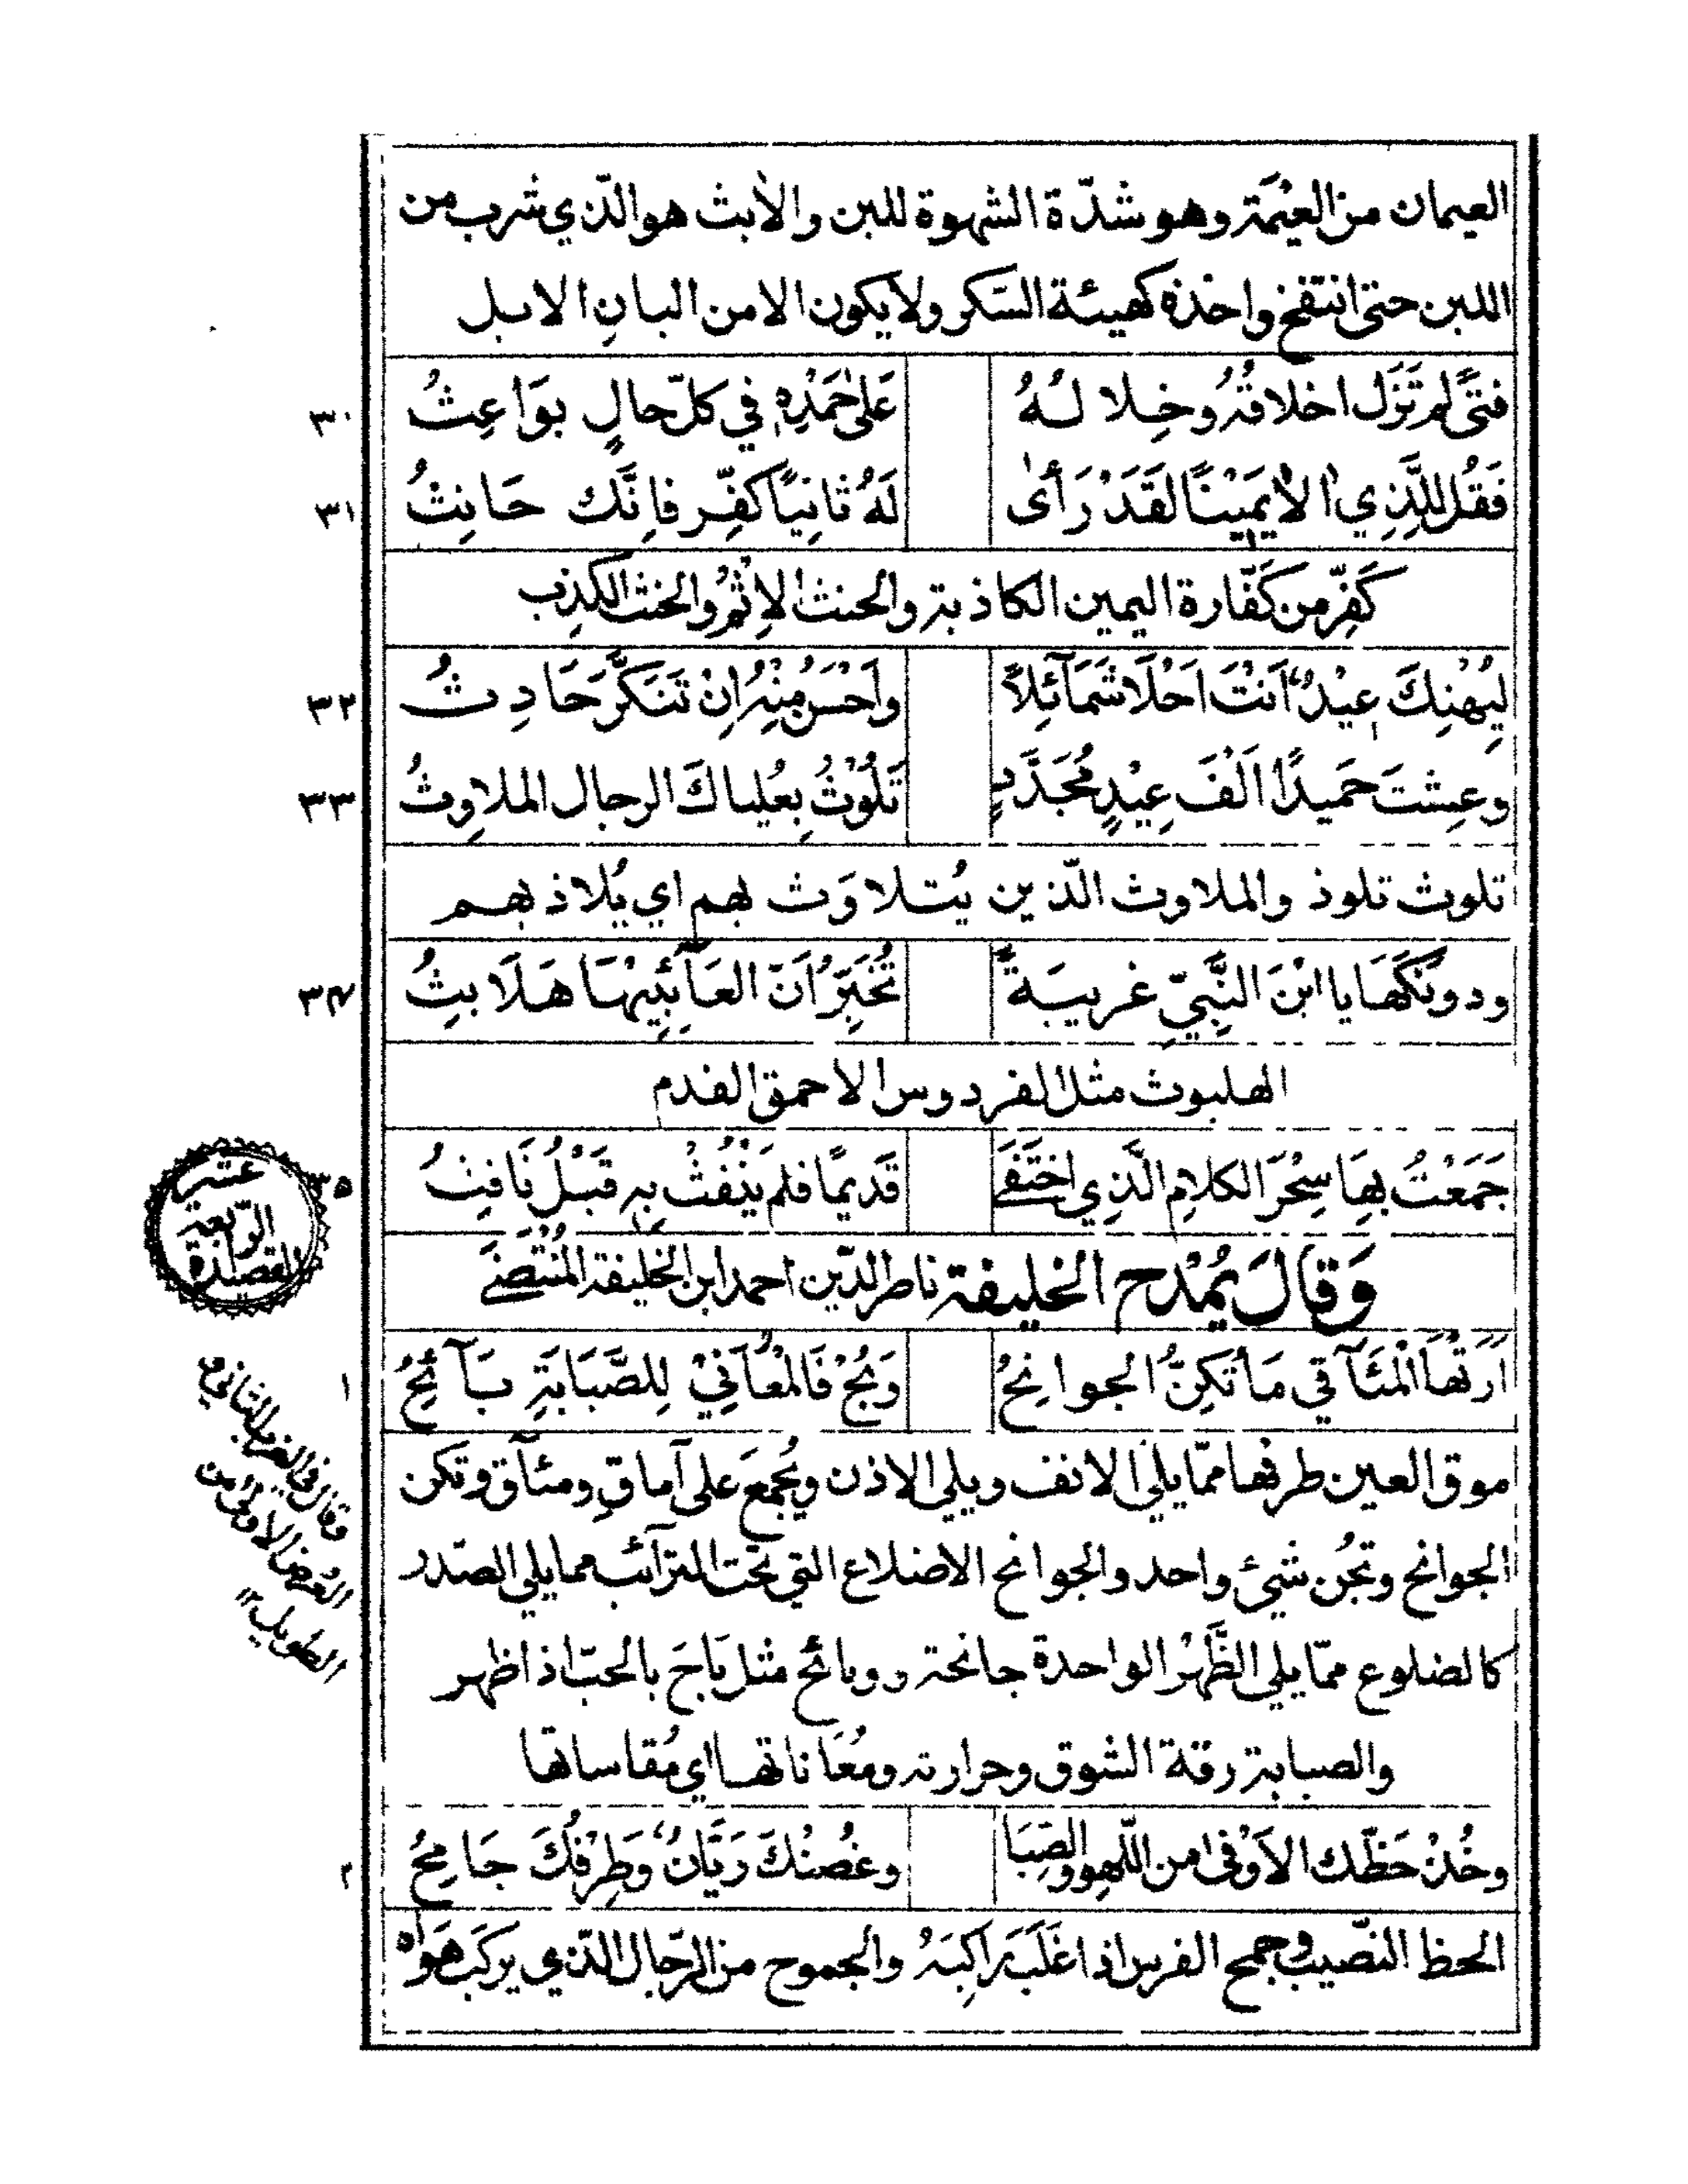 العيمان من العيْمَة وهو شدّة الشهوة للبن والأبث هو الّذي شرب من
اللبن حتى انتفخ واخذه كهيئة السّكر ولا يكون الا من البانِ الابل
فتىً لم تَزَل اخلاقُهُ وخِلالُهُ عَلىٰ حَمْدِهِ في كلّ حالٍ بَوَاعِثُ ٣٠
فَقُل لِلَّذِي اٰلا يَمِيْنًا لَقَدْ رَأىٰ لَهُ ثَانِيًا كَفِّر فاِنَّك حَانِثُ ٣١
كَفِّر من كَفّارة اليمين الكاذبة والحنث الاِثْمُ والحنث الكذب
لِيُهْنِكَ عِيْدٌ اَنْتَ اَحْلَا شَمَآئِلاً واَحْسَنُ مِنْهُ اِنْ تَنَكَّرَ حَادِثُ ٣٢
وعِشتَ حَميدًا اَلْفَ عِيْدٍ مُجَدَّدٍ تَلُوْثُ بِعُلياكَ الرجال الملاوِثُ ٣٣
تلوث تلوذ والملاوث الّذين يُتلاوَث بهم اي يُلاذ بهم
ودونَكَهَا يا ابْنَ النَّبِيّ غريبَةً تُخَبِّرُ اَنّ العَآئِبِيْهَا هَلَابِثُ ٣٤
الهلبوث مثل الفردوس الاحمق الفدم
جَمَعْتُ بِهَا سِحْرَ الكلامِ الّذِي اخْتَفَى قَديمًا فلم يَنْفُثْ بِهِ قَبْلُ نَافِثُ ٣٥
القصيدة الرّابعة عشر
وَقَالَ يُمْدح الخليفة ناصر الدّين احمد ابن الخليفة المُسْتَضئ
اَرَتْهَا الْمَئَآقي مَا تُكِنُّ الجوانِحُ وَبُحْ فَالْمُعَانِيْ لِلصَّبَابَةِ بَآئِحُ ١
وقال في الضرب الثاني من العروض الاولى من الطويل ١٢
موق العين طرفها ممّا يلي الانف ويلي الاذن ويُجمعَ على آماقٍ ومئآق وتكن
الجوانح وتجُن شيئ واحد والجوانح الاضلاع التي تحت الترآئب مما يلي الصّدر
كالضلوع ممّا يلي الظَّهْر الواحدة جانحة وبائح مثل بَاحَ بالحبّ اذا ظهر
والصبابة رقة الشوق وحرارته ومُعَاناتها اي مُقاساتها
وخُذْ حَظّك الاَوْفىٰ من اللّهوِ والصِبَا وغُصنُكَ رَيَّانٌ وَطِرْفُكَ جَامِحُ ٢
الحظ النصّيب وجمح الفرس اذا غَلَبَ رَاكِبَهُ والجموح من الرّجال الّذي يركَب هَوَاه